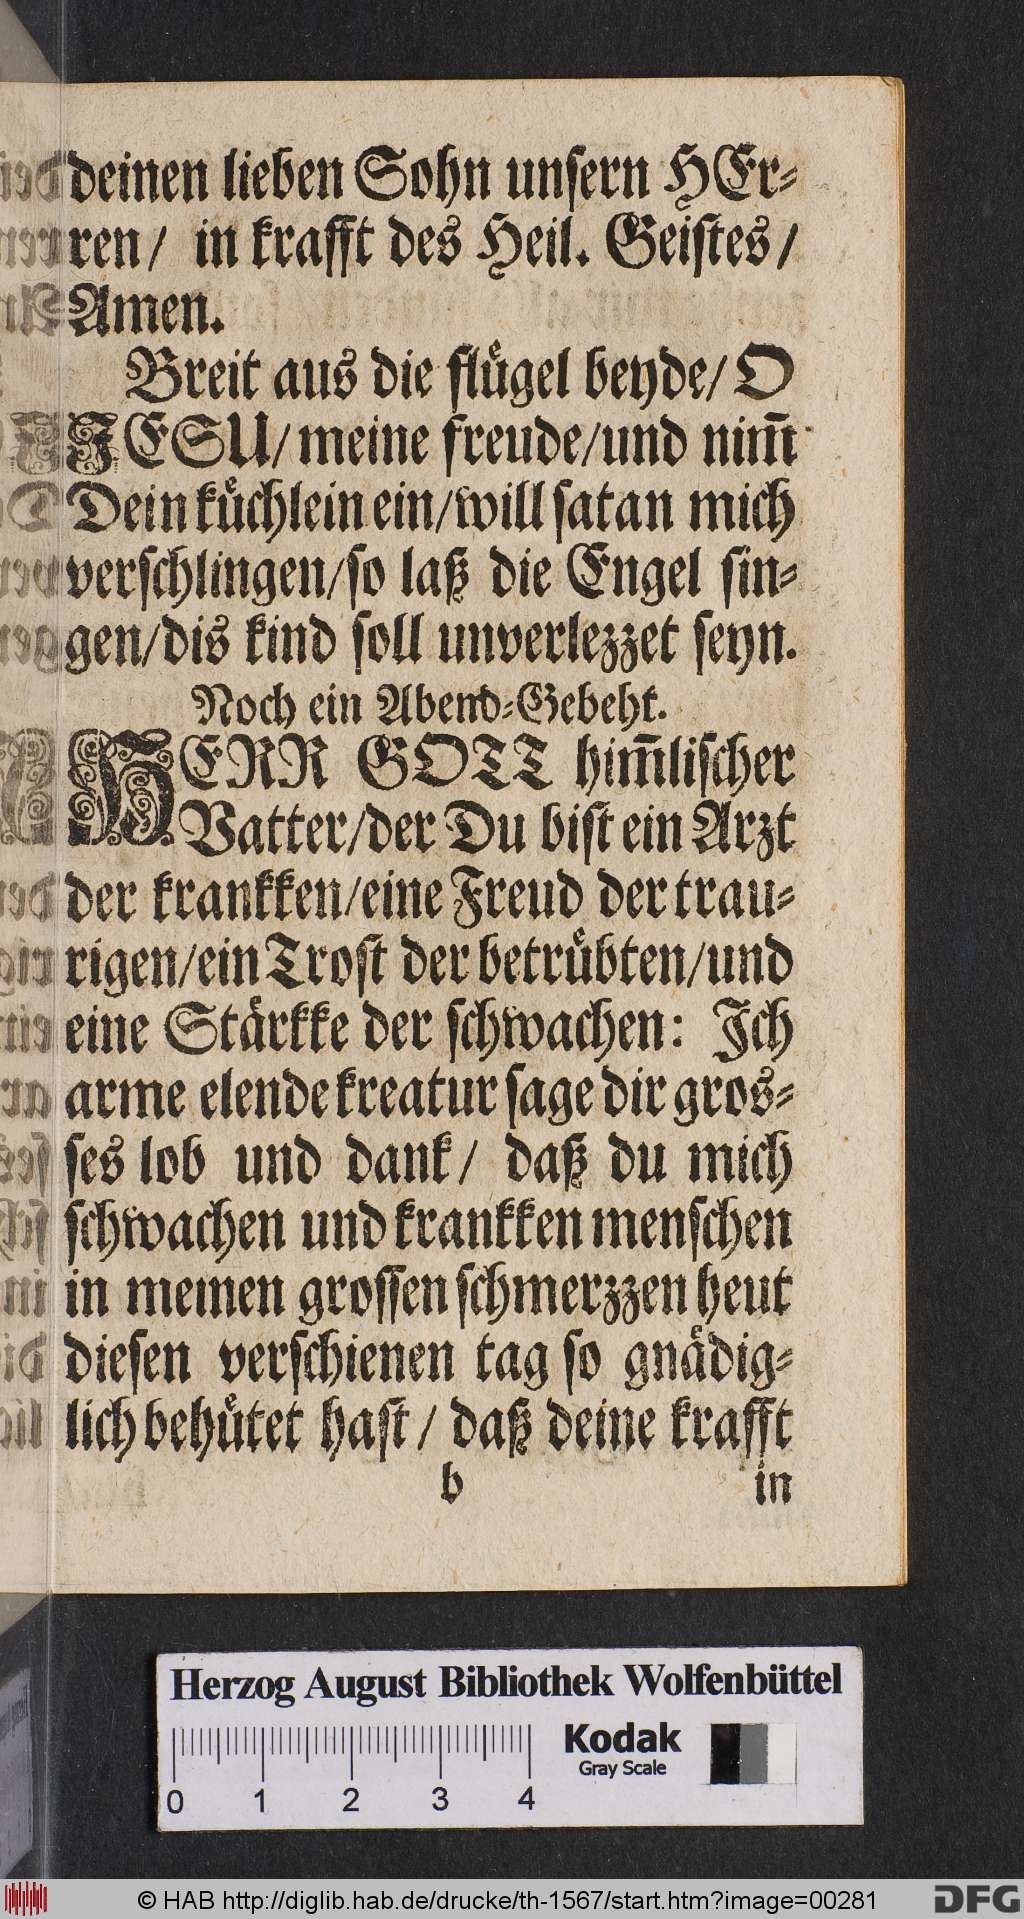 deinen lieben Sohn unſern HEr⸗
ren/ in krafft des Heil. Geiſtes/
Amen.
Breit aus die fluͤgel beyde/ O
JESU/ meine freude/und nim̄
Dein kuͤchlein ein/will ſatan mich
verſchlingen/ſo laß die Engel ſin⸗
gen/dis kind ſoll unverlezzet ſeyn.
Noch ein Abend⸗Gebeht.
HERR GOTT him̄liſcher
Vatter/der Du biſt ein Arzt
der krankken/eine Freud der trau⸗
rigen/ein Troſt der betruͤbten/und
eine Staͤrkke der ſchwachen: Ich
arme elende kreatur ſage dir groſ⸗
ſes lob und dank/ daß du mich
ſchwachen und krankken menſchen
in meinen groſſen ſchmerzzen heut
dieſen verſchienen tag ſo gnaͤdig⸗
lich behuͤtet haſt/ daß deine krafft
b in
Herzog August Bibliothek Wolfenbüttel
Kodak
Gray Scale
0 1 2 3 4
© HAB http://diglib.hab.de/drucke/th-1567/start.htm?image=00281
DFG